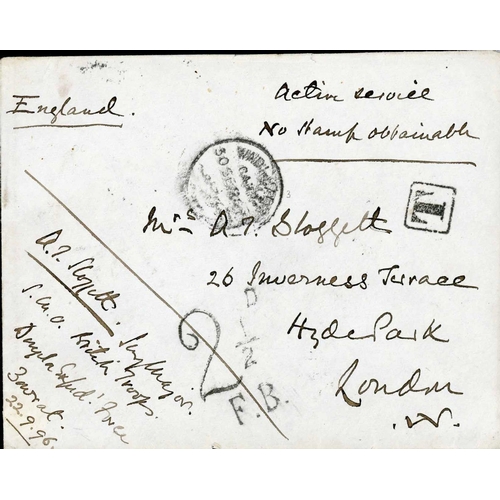 England.
Active service
No Stamp obtainable
T
Mrs A T Sloggett
26 Inverness Terrace
Hyde Park
London
W.
A. T. Sloggett. Surg Major.
S.M.O. British Troops.
Dongola Exped' Force
22.9.96.
2
D
1/2
F.B.